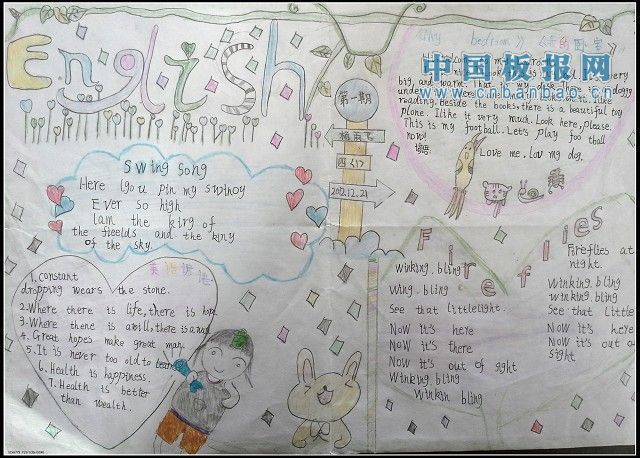 English
第一期
四(1)
2012.12.21
Swing Song
Here I go up in my swing
Ever so high
I am the king of
the fieelds and the king
of the sky.
英语谚语
1. constant
dropping wears the stone.
2. Where there is life, there is hope
3. Where there is a will, there is a way
4. Great hopes make great man.
5. It is never too old to learn
6. Health is happiness.
7. Health is better
than wealth.
《My bedroom》《我的卧室》
big, and warm. That is my desk
reading. Beside the books, there is a beautiful toy
plane. I like it very much. Look here, please.
This is my football. Let's play foo tball
now!
Love me. Lov my dog.
中国板报网
www.cnbanbao.cn
Fireflies
Winking. bling
Wing. bling
See that littlelight.
Now it's here
Now it's there
Now it's out of sight
Winking bling
Winkin bling
Fireflies at
night.
Winking. bling
winking. bling
See that little
Now it's here
Now it's out of
sight